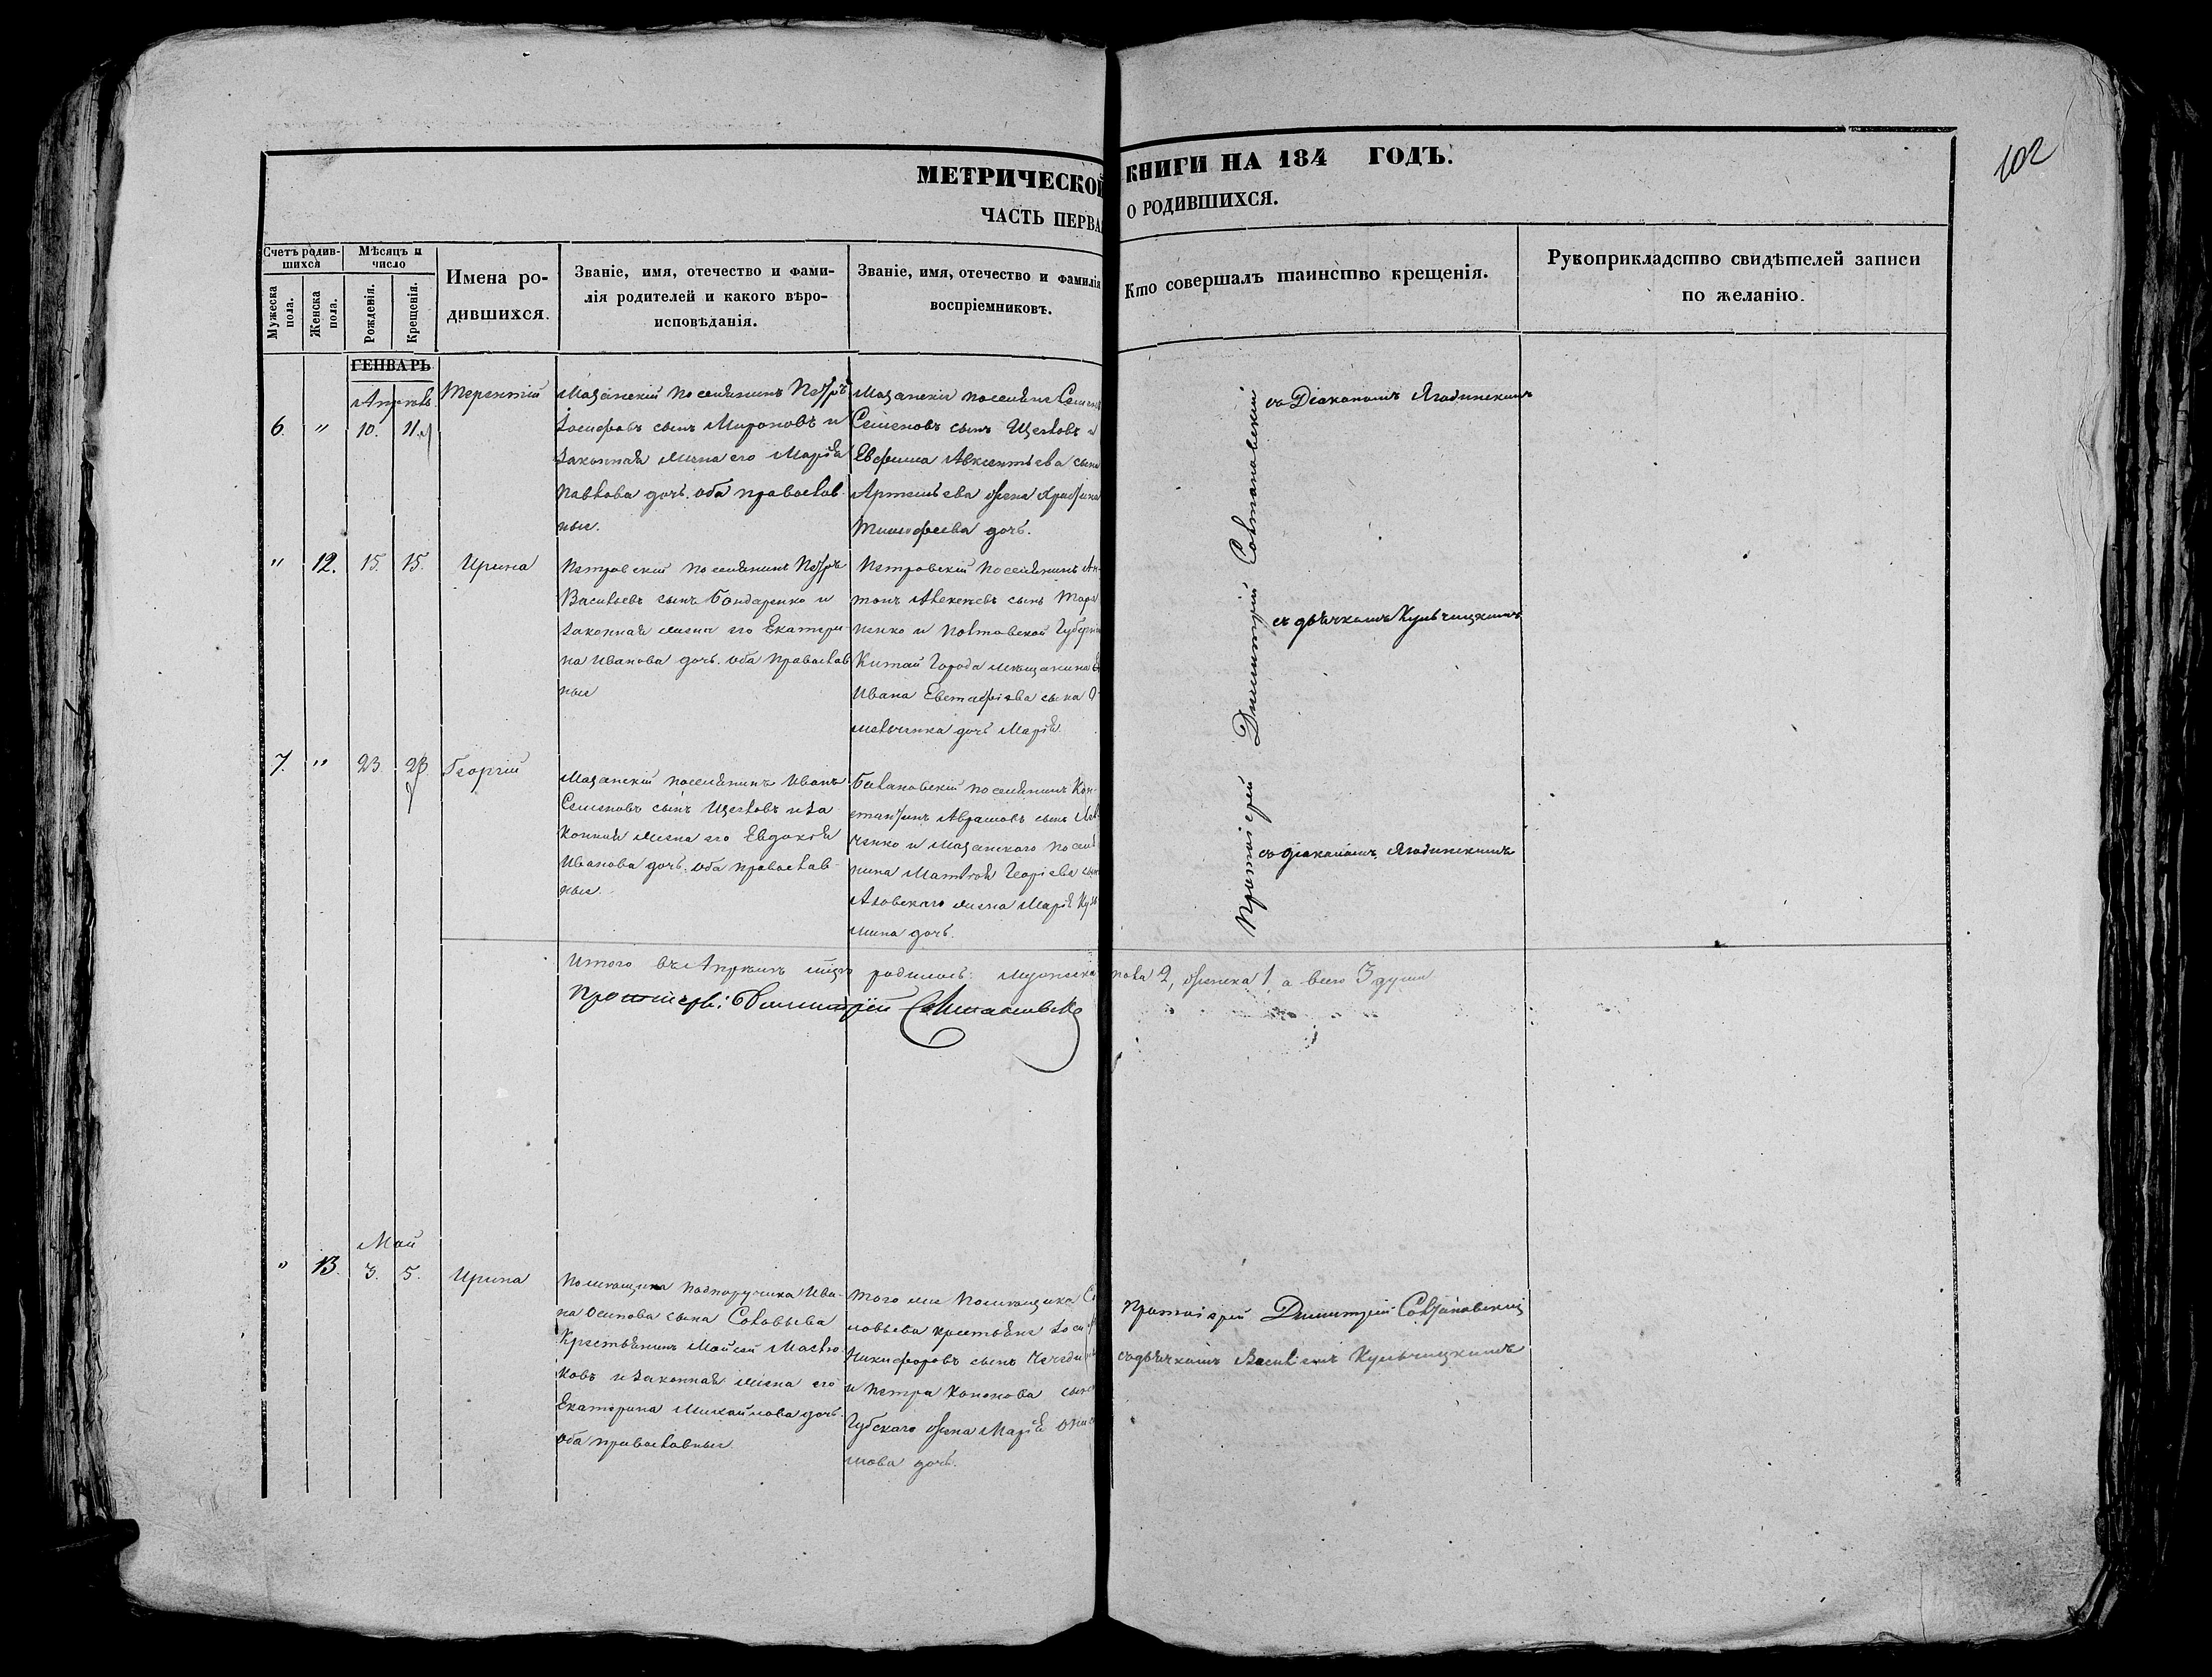 102
МЕТРИЧЕСКОЙ КНИГИ НА 184 ГОДЪ.
ЧАСТЬ ПЕРВА О РОДИВШИХСЯ.
Счетъ родив-
шихся
Мѣсяцъ и
число
Мужеска
пола.
Женска
пола.
Рожденія.
Крещенія.
Имена ро-
дившихся.
Званіе, имя, отечество и фами-
лія родителей и какого вѣро-
исповѣданія.
Званіе, имя, отечество и фамилія
воспріемниковъ.
Кто совершалъ таинство крещенія.
Рукоприкладство свидѣтелей записи
по желанію.
ГЕНВАРЬ
6. " 10. 11.
Терентій
Мазанскій поселянинъ Петръ
Іосифовъ сынъ Мироновъ и
законная жена его Марія
Павлова дочь. оба православ-
ные.
Семеновъ сынъ Щегловъ и
Евфима Авксентьева сына
Артемьева жена
Тимофеева дочь.
съ Діакономъ Ягодинскимъ
" 12. 15. 15.
Ирина
Петровскій поселянинъ Петръ
Васильевъ сынъ Бондаренко и
законная жена его Екатери-
на Иванова дочь. оба православ
ные
Петровскій поселянинъ Ан-
тонъ Алексеевъ сынъ
пенко и Полтавской Губерніи
Китай Города мѣщанина
Ивана Евстафіева сына О-
мельченка дочь Марія
съ дьячкомъ Кульчицкимъ
7. " 23. 23
Георгій
Мазанскій поселянинъ Иванъ
Семеновъ сынъ Щегловъ и за
конная жена его Евдокія
Иванова дочь. оба православ-
ные.
поселянинъ Кон-
стантинъ Абрамовъ сынъ
ченко и Мазанского посел
нина Георгіева
Азовскаго жена Марія Кузь
мина дочь.
съ діакономъ Ягодинскимъ
Протоіерей Димитрій Солтановскій
Итого въ Апрѣлѣ родилось: мужеска пола 2, женска 1 а всего 3 души
Протоіерей Димитрій
Май
" 13. 3. 5.
Ирина
Помѣщика подпоручика Ива-
на Осипова сына Соловьева
Крестьянинъ Мойсей
ковъ и законная жена его
Екатерина Михайлова дочь.
оба православные.
того же Помѣщика Со
ловьева крестьяне
Никифоровъ сынъ
и Петра Кононова сына
Губскаго жена Марія
мова дочь.
Протоіерей Димитрій Солтановскій
съ дьячкомъ Василіемъ Кульчицкимъ